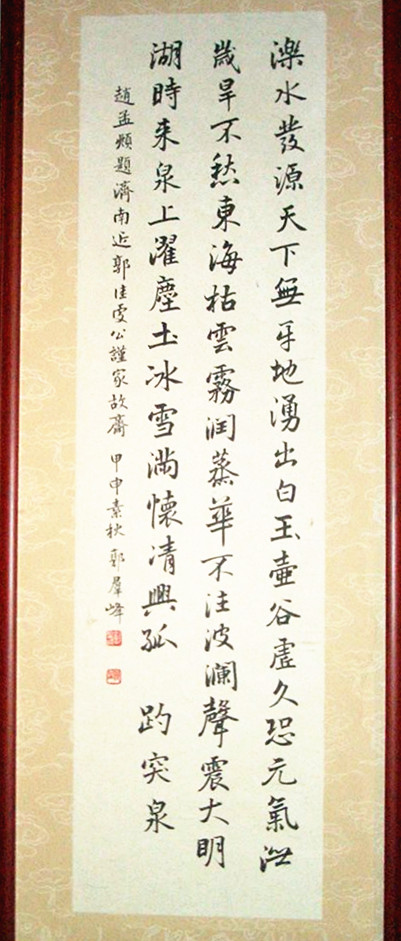 濼水發源天下無平地湧出白玉壺谷虛久恐元氣泄
歲旱不愁東海枯雲霧润蒸華不注波瀾聲震大明
湖時来泉上濯塵土冰雪满懷清興孤 趵突泉
趙孟頫題濟南近郭佳公謹家故齋 甲申素秋郭羣峰